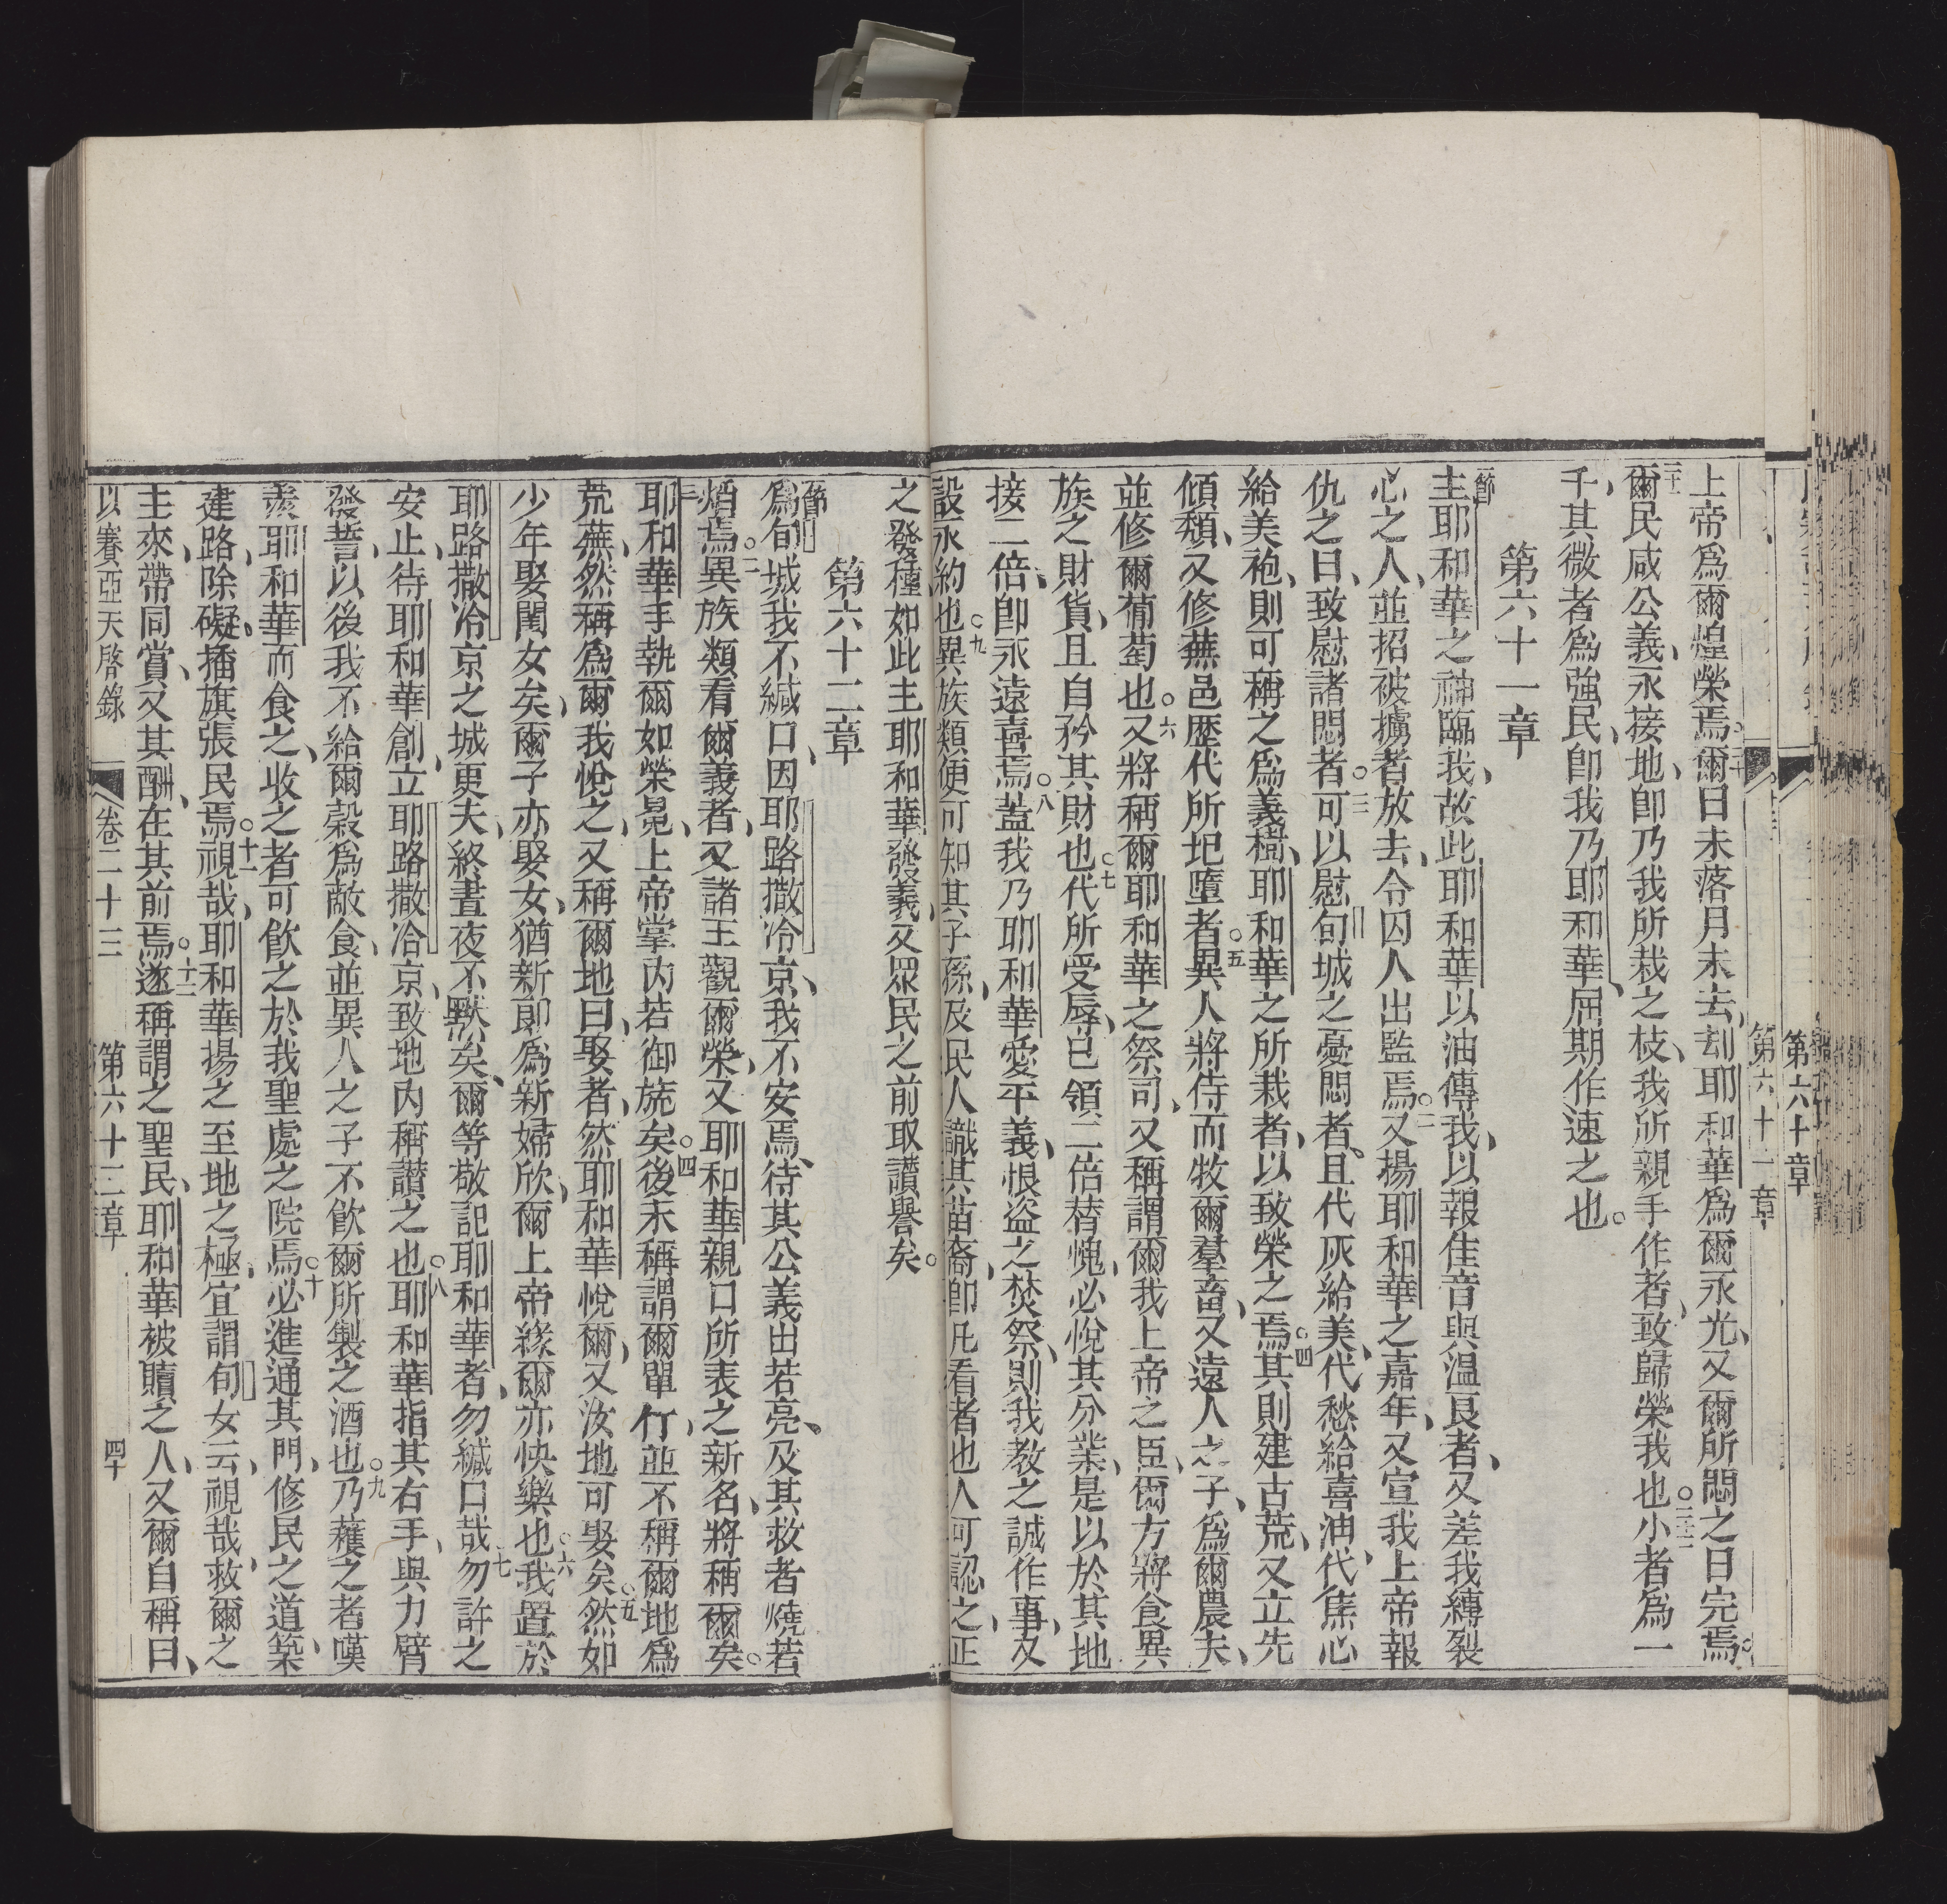 第六十章
第六十一章
上帝爲爾煌榮焉○二十爾日未落月未去刦耶和華爲爾永光、又爾所悶之日完焉○
二十一爾民咸公義、永接地、卽乃我所栽之枝、我所親手作者、致歸榮我也○二十二小者爲一
千、其微者爲強民、卽我乃耶和華、屆期作速之也○
第六十一章
一節主耶和華之神臨我、故此耶和華以油傅我、以報佳音與温良者、又差我縛裂
心之人、並招被擄者放去、令囚人出監焉○二又揚耶和華之嘉年、又宣我上帝報
仇之日、致慰諸悶者○三可以慰旬城之憂悶者、且代灰給美、代愁給喜油、代焦心
給美袍、則可稱之爲義樹、耶和華之所栽者、以致榮之焉○四其則建古荒、又立先
傾頽、又修蕪邑歷代所圯墮者○五異人將侍而牧爾羣畜、又遠人之子、爲爾農夫、
並修爾葡萄也○六又將稱爾耶和華之祭司、又稱謂爾我上帝之臣、爾方將食異
族之財貨、且自矜其財也○七代所受辱、已領二倍替愧、必悅其分業、是以於其地
接二倍、卽永遠喜焉○八蓋我乃耶和華愛平義、恨盜之焚祭、則我教之誠作事、又
設永約也○九異族類便可知其子孫、及民人識其苗裔、卽凡看者也、人可認之、正
之發種、如此主耶和華發義、又眾民之前取讚譽矣○
第六十二章
一節爲旬城我不緘口、因耶路撒冷京、我不安焉、待其公義出若亮、及其救者燒若
焇焉○二異族類看爾義者、又諸王觀爾榮、又耶和華親口所表之新名、將稱爾矣○
三耶和華手執爾如榮晃、上帝掌內若御旒矣○四後未稱謂爾單行、並不稱爾地爲
荒蕪、然稱爲爾我悅之、又稱爾地曰、娶者、然耶和華悅爾、又汝地可娶矣○五然如
少年娶閨女矣、爾子亦娶女、猶新郎爲新婦欣、爾上帝緣爾亦快樂也○六我置於
耶路撒冷京之城更夫、終晝夜不默矣、爾等敬記耶和華者、勿緘口哉○七勿許之
安止、待耶和華創立耶路撒冷京、致地內稱讃之也○八耶和華指其右手、與力臂
發誓、以後我不給爾穀爲敵食、並異人之子不飲爾所製之酒也○九乃蘿之者嘆
羨耶和華而食之、收之者可飲之於我聖處之院焉○十必進通其門、修民之道、築
建路、除礙、插旗張民焉○十一視哉、耶和華揚之至地之極、宜謂旬女云、視哉、救爾之
主來、帶同賞、又其酬、在其前焉○十二遂稱謂之聖民、耶和華被贖之人、又爾自稱曰、
以賽亞天啓錄　卷二十三　第六十二章　四十